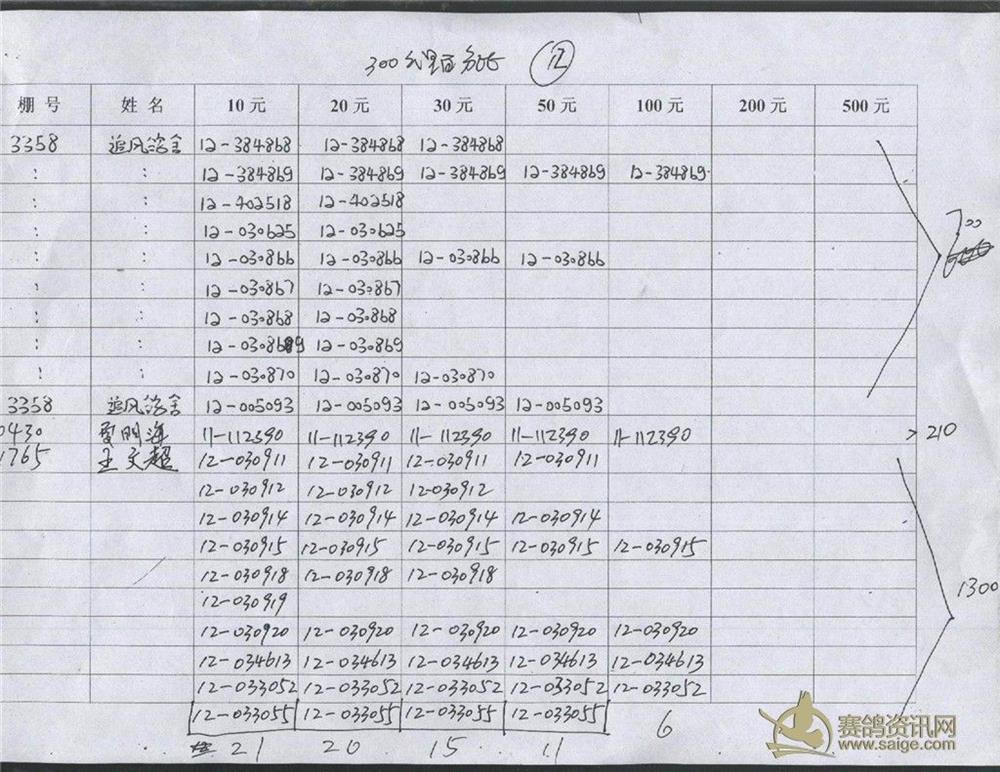 300公里百分比 ⑫
棚号 姓名 10元 20元 30元 50元 100元 200元 500元
3358 追风鸽舍 12-384868 12-384868 12-384868
: : 12-384869 12-384869 12-384869 12-384869 12-384869
: : 12-402518 12-402518
: : 12-030625 12-030625
: : 12-030866 12-030866 12-030866 12-030866
: : 12-030867 12-030867
: : 12-030868 12-030868
: : 12-030869 12-030869
: : 12-030870 12-030870 12-030870
3358 追风鸽舍 12-005093 12-005093 12-005093 12-005093
0430 贾明海 11-112390 11-112390 11-112390 11-112390 11-112390 > 210
1765 王文超 12-030911 12-030911 12-030911 12-030911
12-030912 12-030912 12-030912
12-030914 12-030914 12-030914 12-030914
12-030915 12-030915 12-030915 12-030915 12-030915
12-030918 12-030918 12-030918
12-030919
1300
12-030920 12-030920 12-030920 12-030920 12-030920
12-034613 12-034613 12-034613 12-034613 12-034613
12-033052 12-033052 12-033052 12-033052 12-033052
12-033055 12-033055 12-033055 12-033055 6
21 20 15 11
赛鸽资讯网
www.saige.com